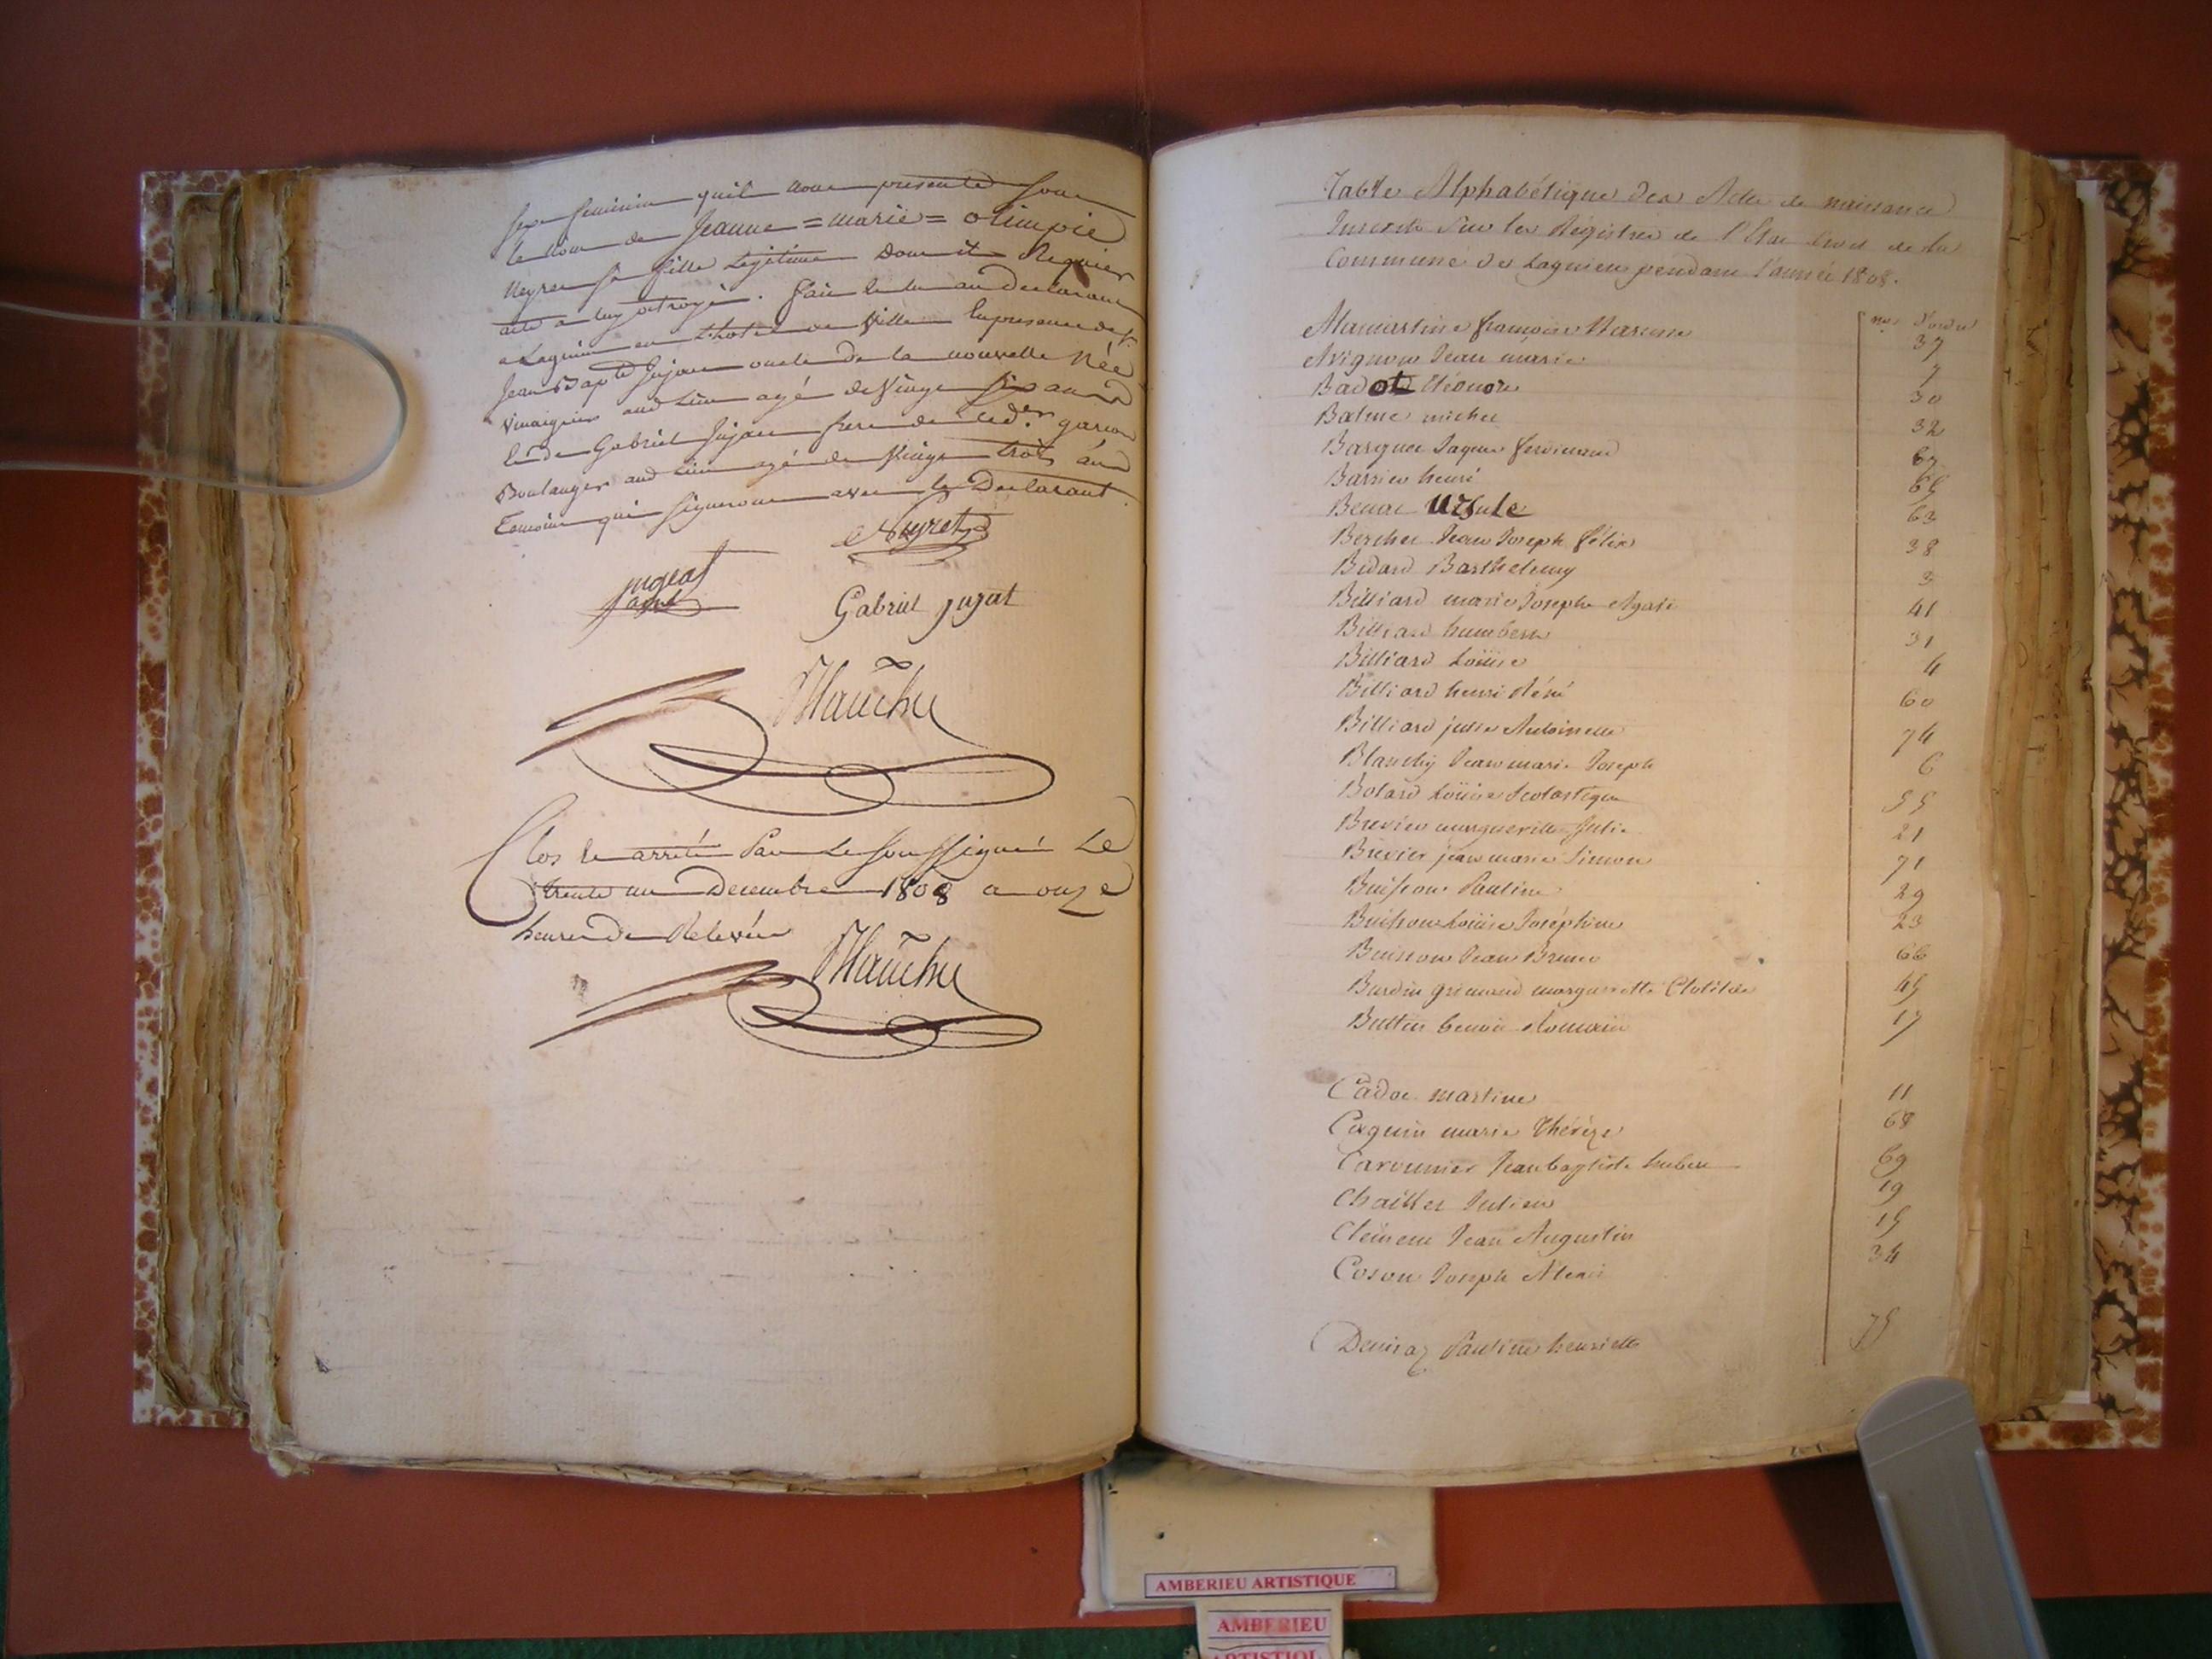 sexe feminin quil nous presente sous
le nom de Jeanne = marie = olimpie
Neyret sa fille Legitime Dont il Requier
acte a luy octroyé. fait et lu au declarant
a Lagnieu en L'hotel de Ville En presence de Sr.
Jean Bapte Jujat oncle de la nouvelle Née
Vinaigrier aud Lieu agé de Vingt six ans
Et de Gabriel Jujat frere de led.er garcon
Boulanger aud Lieu agé de Vingt trois ans
Temoins qui signeront avec le Declarant
Neyret
jugeat
Gabriel jujat
Blanchy
Clos et arrêté Par Le soussigné Le
trente un Decembre 1808 a onze
heures de Relevée
Blanchy
Table Alphabétique des Actes de naissance
Inscrits Sur les Régistres de l'Etat Civil de la
Commune de Lagnieu pendant l'année 1808.
nos. d'ordre
Alamartine françois Narcisse 37
Avignon Jean marie 7
Badot Eléonore 30
Balme michel 32
Barquet Jaques ferdinand 67
Barrien henri 65
Benat Ursule 63
Berchet Jean Joseph félix 38
Bidard Barthelemy 3
Billiard marie Josephe Agate 41
Billiard humbert 31
Billiard Loüise 4
Billiard henri Réné 60
Billiard julie Antoinette 74
Blanchy Jean marie Joseph 6
Bolard Loüise Scolastique 55
Brevier margueritte Julie 21
Brevier jean marie Simon 71
Buisson Pauline 29
Buisson Loüise Joséphine 23
Buisson Jean Bruno 66
Burdin grimaud margueritte Clotilde 45
Buttin benoit Romain 17
Cadoc martine 11
Caquin marie Thérèze 68
Caronnier Jean baptiste hubert 69
Chaillet Julien 19
Clément Jean Augustin 15
Coson Joseph Alexis 34
Deniaz Pauline henriette 75
AMBERIEU ARTISTIQUE
AMBERIEU
ARTISTIQU